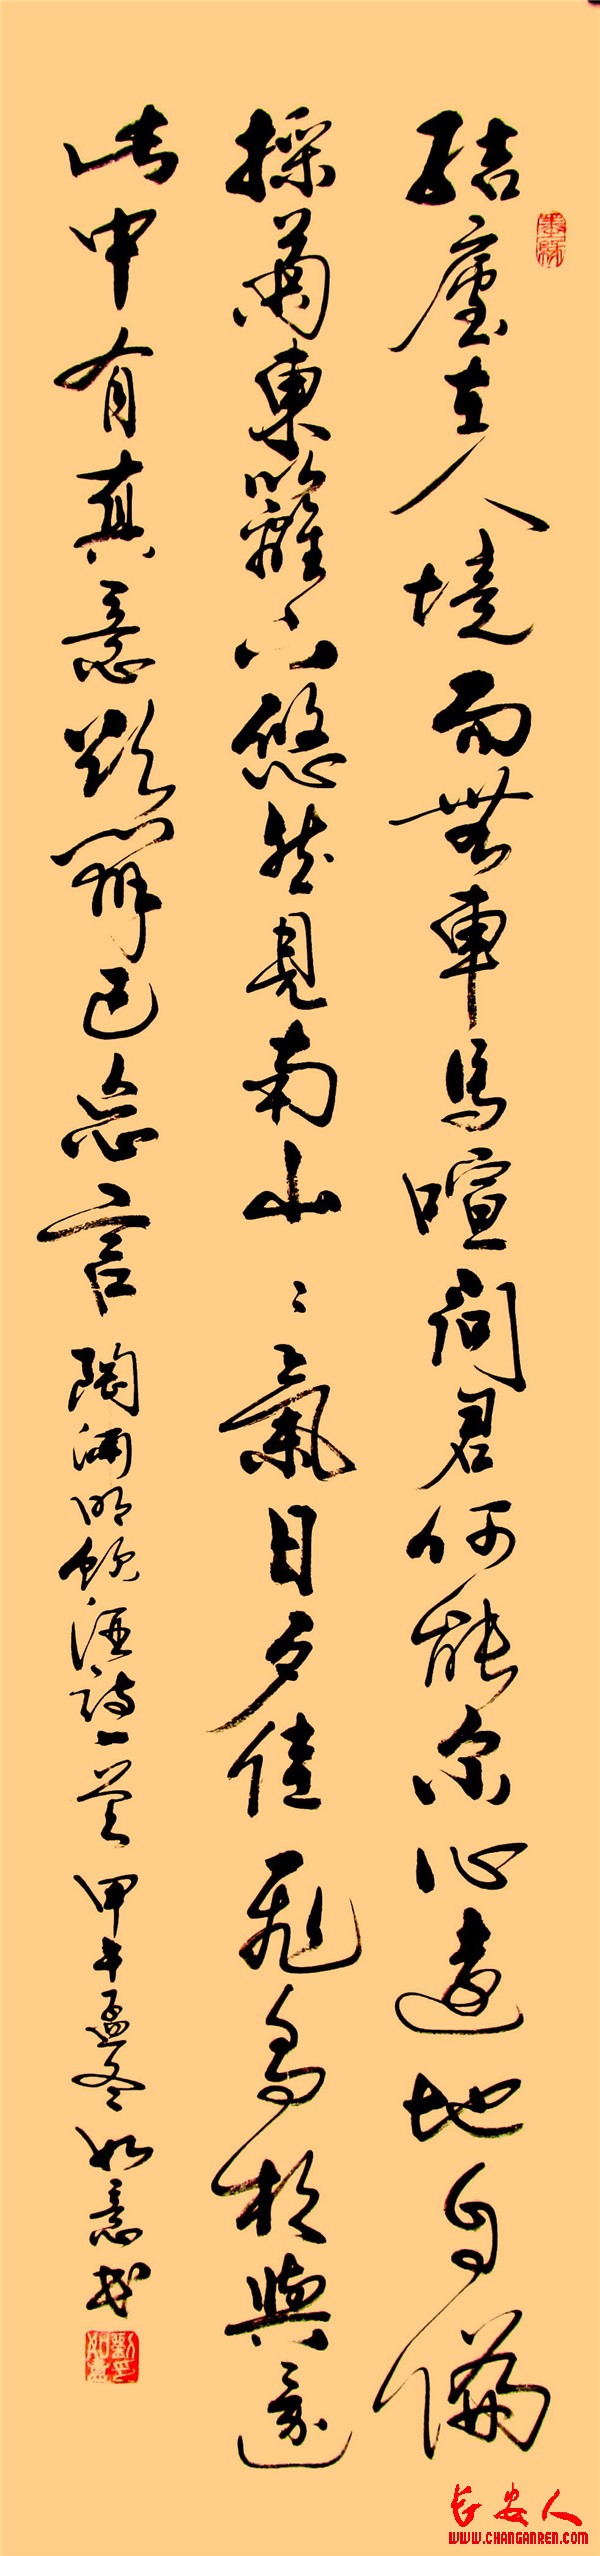 墨緣
結廬在人境而無車馬喧問君何能尔心遠地自偏
採菊東籬下悠然見南山〻氣日夕佳飛鳥相與還
此中有真意欲辨已忘言 陶渊明飲酒詩一首 甲午孟冬 如意书
劉印如意
长安人
WWW.CHANGANREN.COM